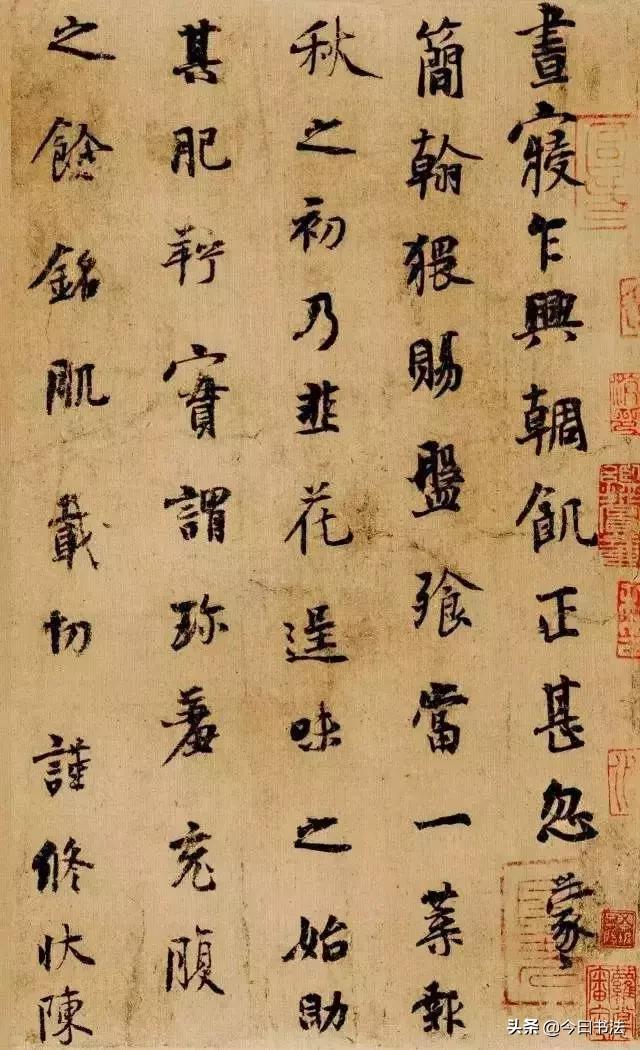 晝寢乍興輖飢正甚忽蒙
簡翰猥賜盤飧當一葉報
秋之初乃韭花逞味之始助
其肥羜實謂珍羞充腹
之餘銘肌載切 謹修狀陳
头条 @今日书法